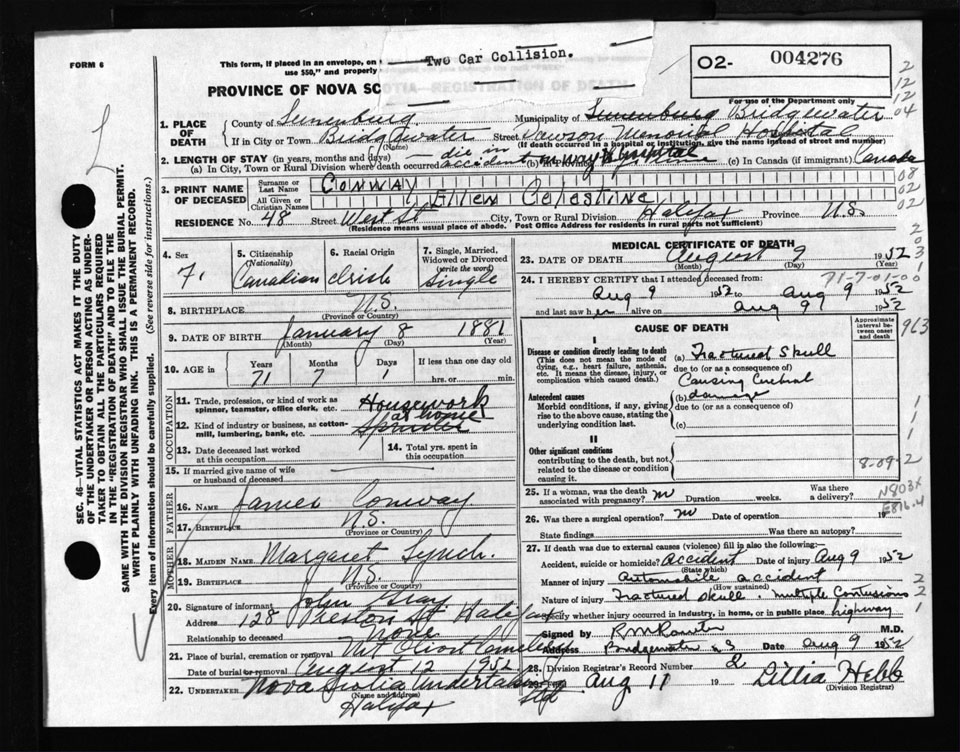 FORM 6
This form, if placed in an envelope, on
use $50," and properly
Two Car Collision.
O2- 004276
PROVINCE OF NOVA SC OTIA—REGISTRATION OF DEATH
For use of the Department only
1. PLACE OF DEATH
County of Lunenburg Municipality of Lunenburg Bridgewater
If in City or Town Bridgewater Street Dawson Memorial Hospital
(Name) (If death occurred in a hospital or institution, give name instead of street and number)
2. LENGTH OF STAY (in years, months and days)
(a) In City, Town or Rural Division where death occurred (c) In Canada (if immigrant) Canada
3. PRINT NAME OF DECEASED
Surname or Last Name CONWAY
All Given or Christian Names Ellen Celestine
RESIDENCE No. 48 Street West St City, Town or Rural Division Halifax Province N.S.
(Residence means usual place of abode. Post Office Address for residents in rural parts not sufficient)
4. Sex
F.
5. Citizenship (Nationality)
Canadian
6. Racial Origin
Irish
7. Single, Married, Widowed or Divorced (write the word)
Single
8. BIRTHPLACE N.S.
(Province or Country)
9. DATE OF BIRTH January 8 1881
(Month) (Day) (Year)
10. AGE in Years Months Days If less than one day old
71 7 1 hrs. or min.
OCCUPATION
11. Trade, profession, or kind of work as spinner, teamster, office clerk, etc. Housework
12. Kind of industry or business, as cotton-mill, lumbering, bank, etc. at home
Spinster
13. Date deceased last worked at this occupation
14. Total yrs. spent in this occupation
15. If married give name of wife or husband of deceased
FATHER
16. NAME James Conway
17. BIRTHPLACE N.S.
(Province or Country)
MOTHER
18. MAIDEN NAME Margaret Lynch.
19. BIRTHPLACE N.S.
(Province or Country)
20. Signature of informant John Gray
Address 128 Preston St. Halifax
Relationship to deceased None
21. Place of burial, cremation or removal Mt Olivet Cemetery
Date of burial or removal August 12 1952
22. UNDERTAKER Nova Scotia Undertaking
(Name and Address)
Halifax
MEDICAL CERTIFICATE OF DEATH
23. DATE OF DEATH August 9 1952
(Month) (Day) (Year)
24. I HEREBY CERTIFY that I attended deceased from:
71-7-01-00
Aug 9 1952 to Aug 9 1952
and last saw her alive on Aug 9 1952
CAUSE OF DEATH
Approximate interval between onset and death
963
I
Disease or condition directly leading to death (a) Fractured Skull
(This does not mean the mode of dying, e.g., heart failure, asthenia, etc. It means the disease, injury, or complication which caused death.)
due to (or as a consequence of)
Causing Cerebral
Antecedent causes (b) damage
Morbid conditions, if any, giving rise to the above cause, stating the underlying condition last.
due to (or as a consequence of)
(c)
II
Other significant conditions
contributing to the death, but not related to the disease or condition causing it.
8-09-2
25. If a woman, was the death associated with pregnancy? no Duration weeks. Was there a delivery?
N803X
E816.4
26. Was there a surgical operation? no Date of operation 19
State findings Was there an autopsy?
27. If death was due to external causes (violence) fill in also the following:-
Accident, suicide or homicide? accident Date of injury Aug 9 1952
(State which)
Manner of injury Automobile accident
(How sustained)
Nature of injury Fractured skull. multiple contusions
Specify whether injury occurred in industry, in home, or in public place highway
Signed by M.D.
Address Bridgewater N S Date Aug 9 1952
28. Division Registrar's Record Number
Aug 11 19 Lillia Hebb
(Division Registrar)
SEC. 46—VITAL STATISTICS ACT MAKES IT THE DUTY
OF THE UNDERTAKER OR PERSON ACTING AS UNDER-
TAKER TO OBTAIN ALL THE PARTICULARS REQUIRED
IN THE "REGISTRATION OF DEATH" AND TO FILE THE
SAME WITH THE DIVISION REGISTRAR WHO SHALL ISSUE THE BURIAL PERMIT.
WRITE PLAINLY WITH UNFADING INK. THIS IS A PERMANENT RECORD.
Every item of information should be carefully supplied. (See reverse side for instructions.)